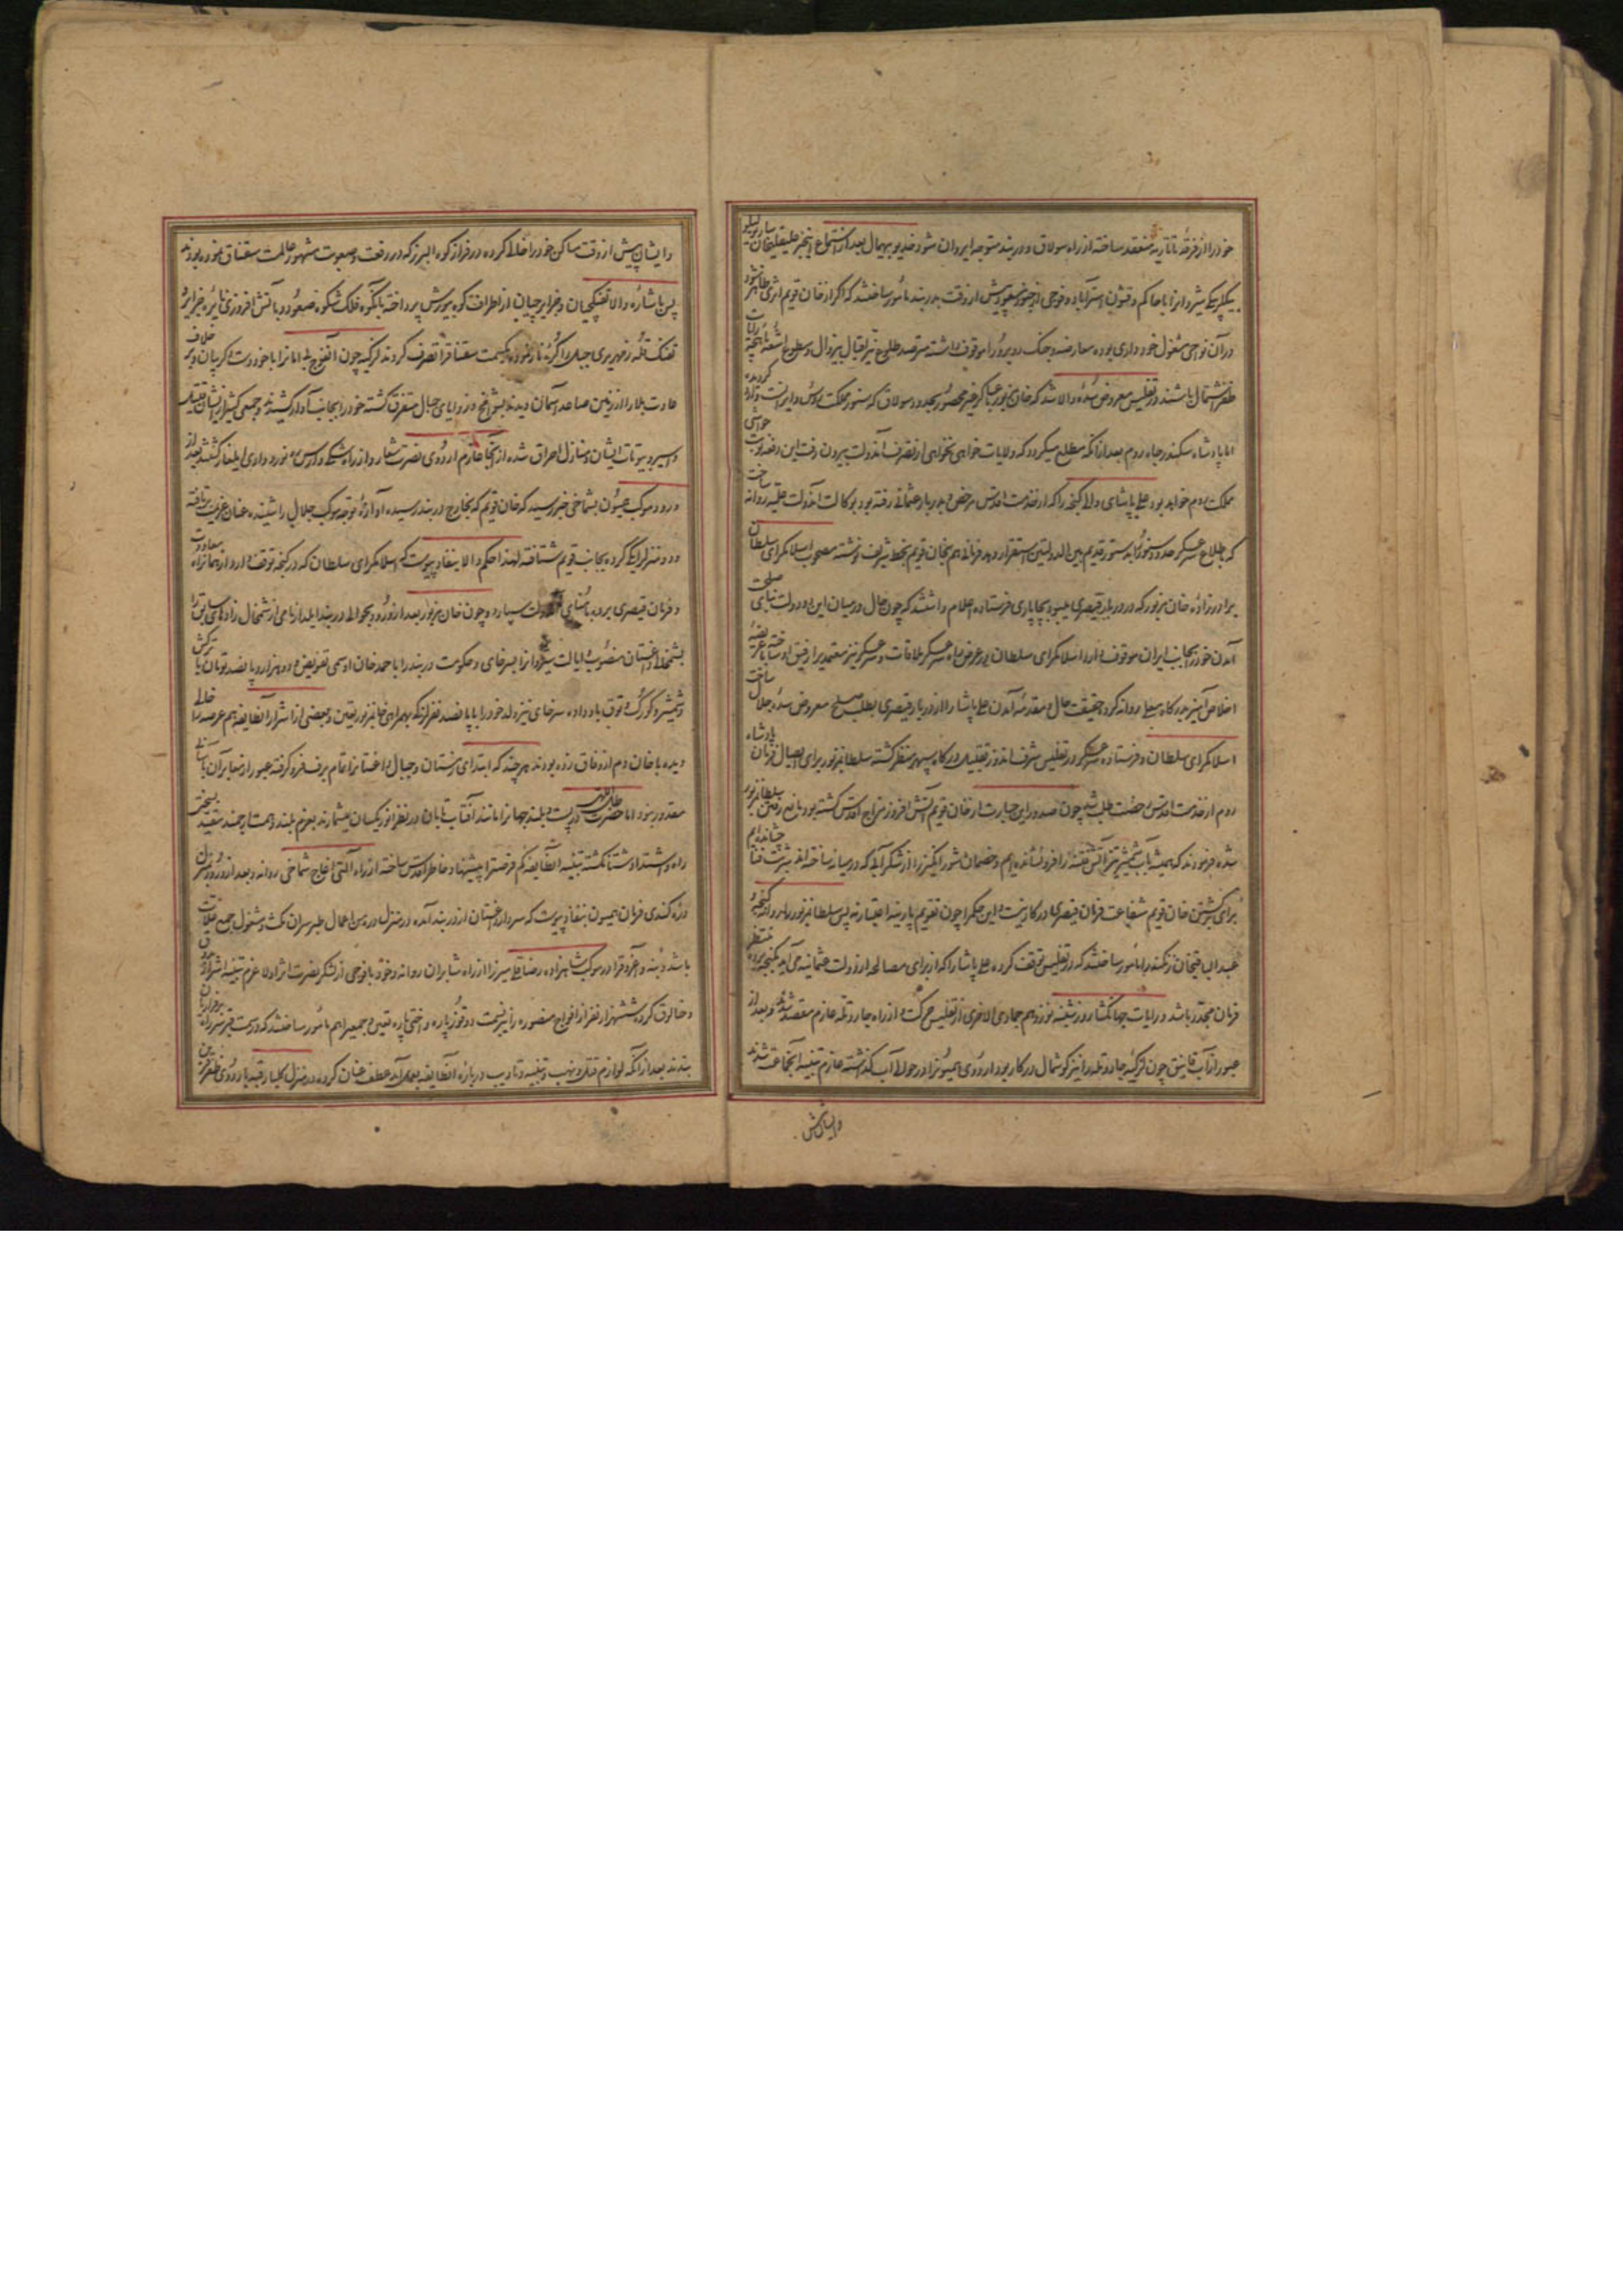 خود را از فرقهٔ تاتاریه منعقد ساخته از راه سولاق و دربند متوجه ایروان شود خدیو بیهمال بعد از استماع اینخبر علیقلیخان ساریویلو
بیگلربیگی شیروانرا با حاکم و قشون استرآباد و فوجی از جنود مسعود پیش از وقت بدربند مأمور ساختند که اگر از خان قویم اثری ظاهر شود
در آن نواحی مشغول خودداری بوده معارضه و جنگ روبرو را موقوف داشته مترصد طلوع نیر اقبال بیزوال و سطوع اشعهٔ رایات
ظفر اشتمال باشند در تفلیس معروض سدهٔ والا شد که خان مزبور با عساکر غیر محصور بحدود سولاق که سنور مملکت روس و ایرانست وارد گردیده
اما پادشاه سکندر جاه روم بعد از آنکه مطلع میگردد که ولایات خواهی نخواهی از تصرف آندولت بیرون رفت این دفعه نوبت حواشی
مملکت روم خواهد بود علی پاشای والی گنجه را که از خدمت اقدس مرخص و بدربار عثمانی رفته بود بوکالت آندولت علیه روانه ساخت
که باطلاع عسکر حدود و سنور بدستور قدیم بین الدولتین استقرار دهد فرمانی هم بخان قویم بخط شریف نوشته مصحوب اسلامکرای سلطان
برادرزادهٔ خان مزبور که در دربار قیصری میبود بچاپاری فرستاده اعلام داشتند که چون حال در میان این دو دولت بنای صلحست
آمدن خود را بجانب ایران موقوف دارد اسلامکرای سلطان در عرض راه با سر عسکر ملاقات و سر عسکر نیز معتمدی را رفیق او ساخته با عریضهٔ
اخلاص آمیز بدرگاه معلی روانه کرد و حقیقت حال و مقدمهٔ آمدن علی پاشا را از دربار قیصری بطلب صلح معروض سدهٔ جلال ساخت
اسلامکرای سلطان و فرستادهٔ سر عسکر در تفلیس شرف اندوز تقبیل درگاه سپهر منظر گشته سلطان مزبور برای ایصال فرمان پادشاه
روم از خدمت اقدس رخصت طلب شد چون صدور این جسارت از خان قویم آتش افروز مزاج اقدس گشته بود مانع رفتن سلطان مزبور
شده فرمودند که همیشه بآب شمشیر تیز آتش فتنه را فرو نشانده‌ایم و خصمان شورانگیز را از شکرآبی که در میانه ساخته‌اند شربت فنا چشانده‌ایم
برای برگشتن خان قویم شفاعت فرمان قیصری در کار نیست و این حکم را چون تقویم پارینه اعتبار نه پس سلطان مزبور را روانه گنجه و
عبدالباقیخان زنگنه را مأمور ساختند که در تفلیس توقف کرده علی پاشا را که از برای مصالحه از دولت عثمانیه می‌آید بگنجه برده منتظر
فرمان مجدد باشد و رایات جهانگشا روز شنبه نوزدهم جمادی الاخری از تفلیس حرکت و از راه جار و تله عازم مقصد شد و بعد از
عبور از آب قانیق چون لزگیهٔ جار و تله را نیز گوشمال در کار بود اردوی همیونرا در حوالی آب گذاشته عازم تنبیه آنجماعت شدند
و ایشان پیش
و ایشان پیش از وقت مساکن خود را خالی کرده در فراز کوه البرز که در رفعت و صعوبت مشهور عالمست سقناق نموده بودند
پس باشارهٔ والا تفنگچیان و جزایرچیان از اطراف کوه بیورش پرداخته بآنکوه فلک شکوه صعود و بآتش افروزی نایره جزایر و
تفنگ قلهٔ زمهریری جبال را کرهٔ نار نموده یکسمت سقناقرا تصرف کردند لزگیه چون آنفوج بلا امانرا با خود دست و گریبان و بر خلاف
عادت بلا را از زمین صاعد آسمان دیدند بیشتر در زوایای جبال متفرق گشته خود را بجانب آوار کشیدند و جمعی کثیر از ایشان قتیل
و اسیر و بیوتات ایشان و منازل احراق شده از آنجا عازم اردوی نصرت شعار و از راه شکی و ارس نورد وادی ایلغار گشتند بعد از
ورود موکب همیون بشماخی خبر رسید که خان قویم که بخارج دربند رسیده آوازهٔ توجه موکب جلال را شنیده عنان عزیمت تافته
دو منزل را یکی کرده بجانب قویم شتافته لهذا حکم والا بنفاذ پیوست که اسلامکرای سلطان که در گنجه توقف دارد از همانراه معاودت
و فرمان قیصری برده بامنای آندولت سپارد و چون خان مزبور بعد از ورود بحوالی دربند ایلدار نامی از شمخال زادهای سابق را
بشمخالی داغستان منصوب و ایالت شیروانرا بسرخای و حکومت دربند را با احمد خان اوسمی تفویض و دو هزار و پانصد تومان با ترکش
و شمشیر و کورک و توق باو داده سرخای نیز ولد خود را با پانصد نفر لزگیه بهمراهی خان مزبور تعیین و بعضی از اشرار آنطایفه هم عرصه را خالی
دیده با خان دم از وفاق زده بودند هر چند که ابتدای زمستان و جبال داغستانرا تمام برف فرو گرفته عبور از معابر آن باسانی
مقدور نبود اما حضرت ظل اللهی که پست و بلند جهانرا مانند آفتاب تابان در نظر انور یکسان میشمارند بعزم بلند و همت ارجمند مقید بسختی
راه و اشتداد شتا نگشته تنبیه آنطایفه کم فرصترا پیشنهاد خاطر اقدس ساخته از راه آلتی آغاج شماخی روانه و بعد از ورود بمنزل
دره کندی فرمان همیون بنفاذ پیوست که سردار داغستان از دربند آمده در منزل دره من اعمال طبرسران مکث و مشغول جمع غلات
باشد و بنه و آغروق را در موکب شاهزاده رضاقلی میرزا از راه شابران روانه و خود با فوجی از لشکر نصرت اثر اولا عزم تنبیه اشرار
و خالوق کرده ششهزار نفر از افواج منصوره را بسه قسمت دوقوز پاره و اختی پاره تعیین و جمعیرا هم مأمور ساختند که در سمت قبر سر راه بر فراریان
بندند بعد از آنکه لوازم قتل و نهب و تنبیه و تادیب در بارهٔ آنطایفه بعمل آمد عطف عنان کرده در منزل کلیار قبه باردوی ظفر قرین